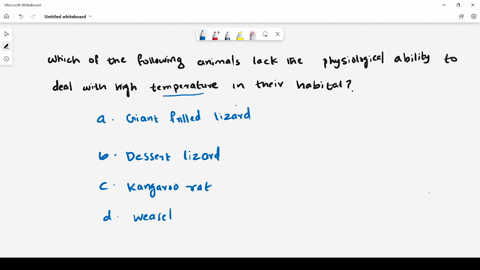 Microsoft Whiteboard
Untitled whiteboard
which of the following animals lack the physiological ability to
deal with high temperature in their habitat?
a. Giant frilled lizard
b. Dessert lizard
c. Kangaroo rat
d. weasel